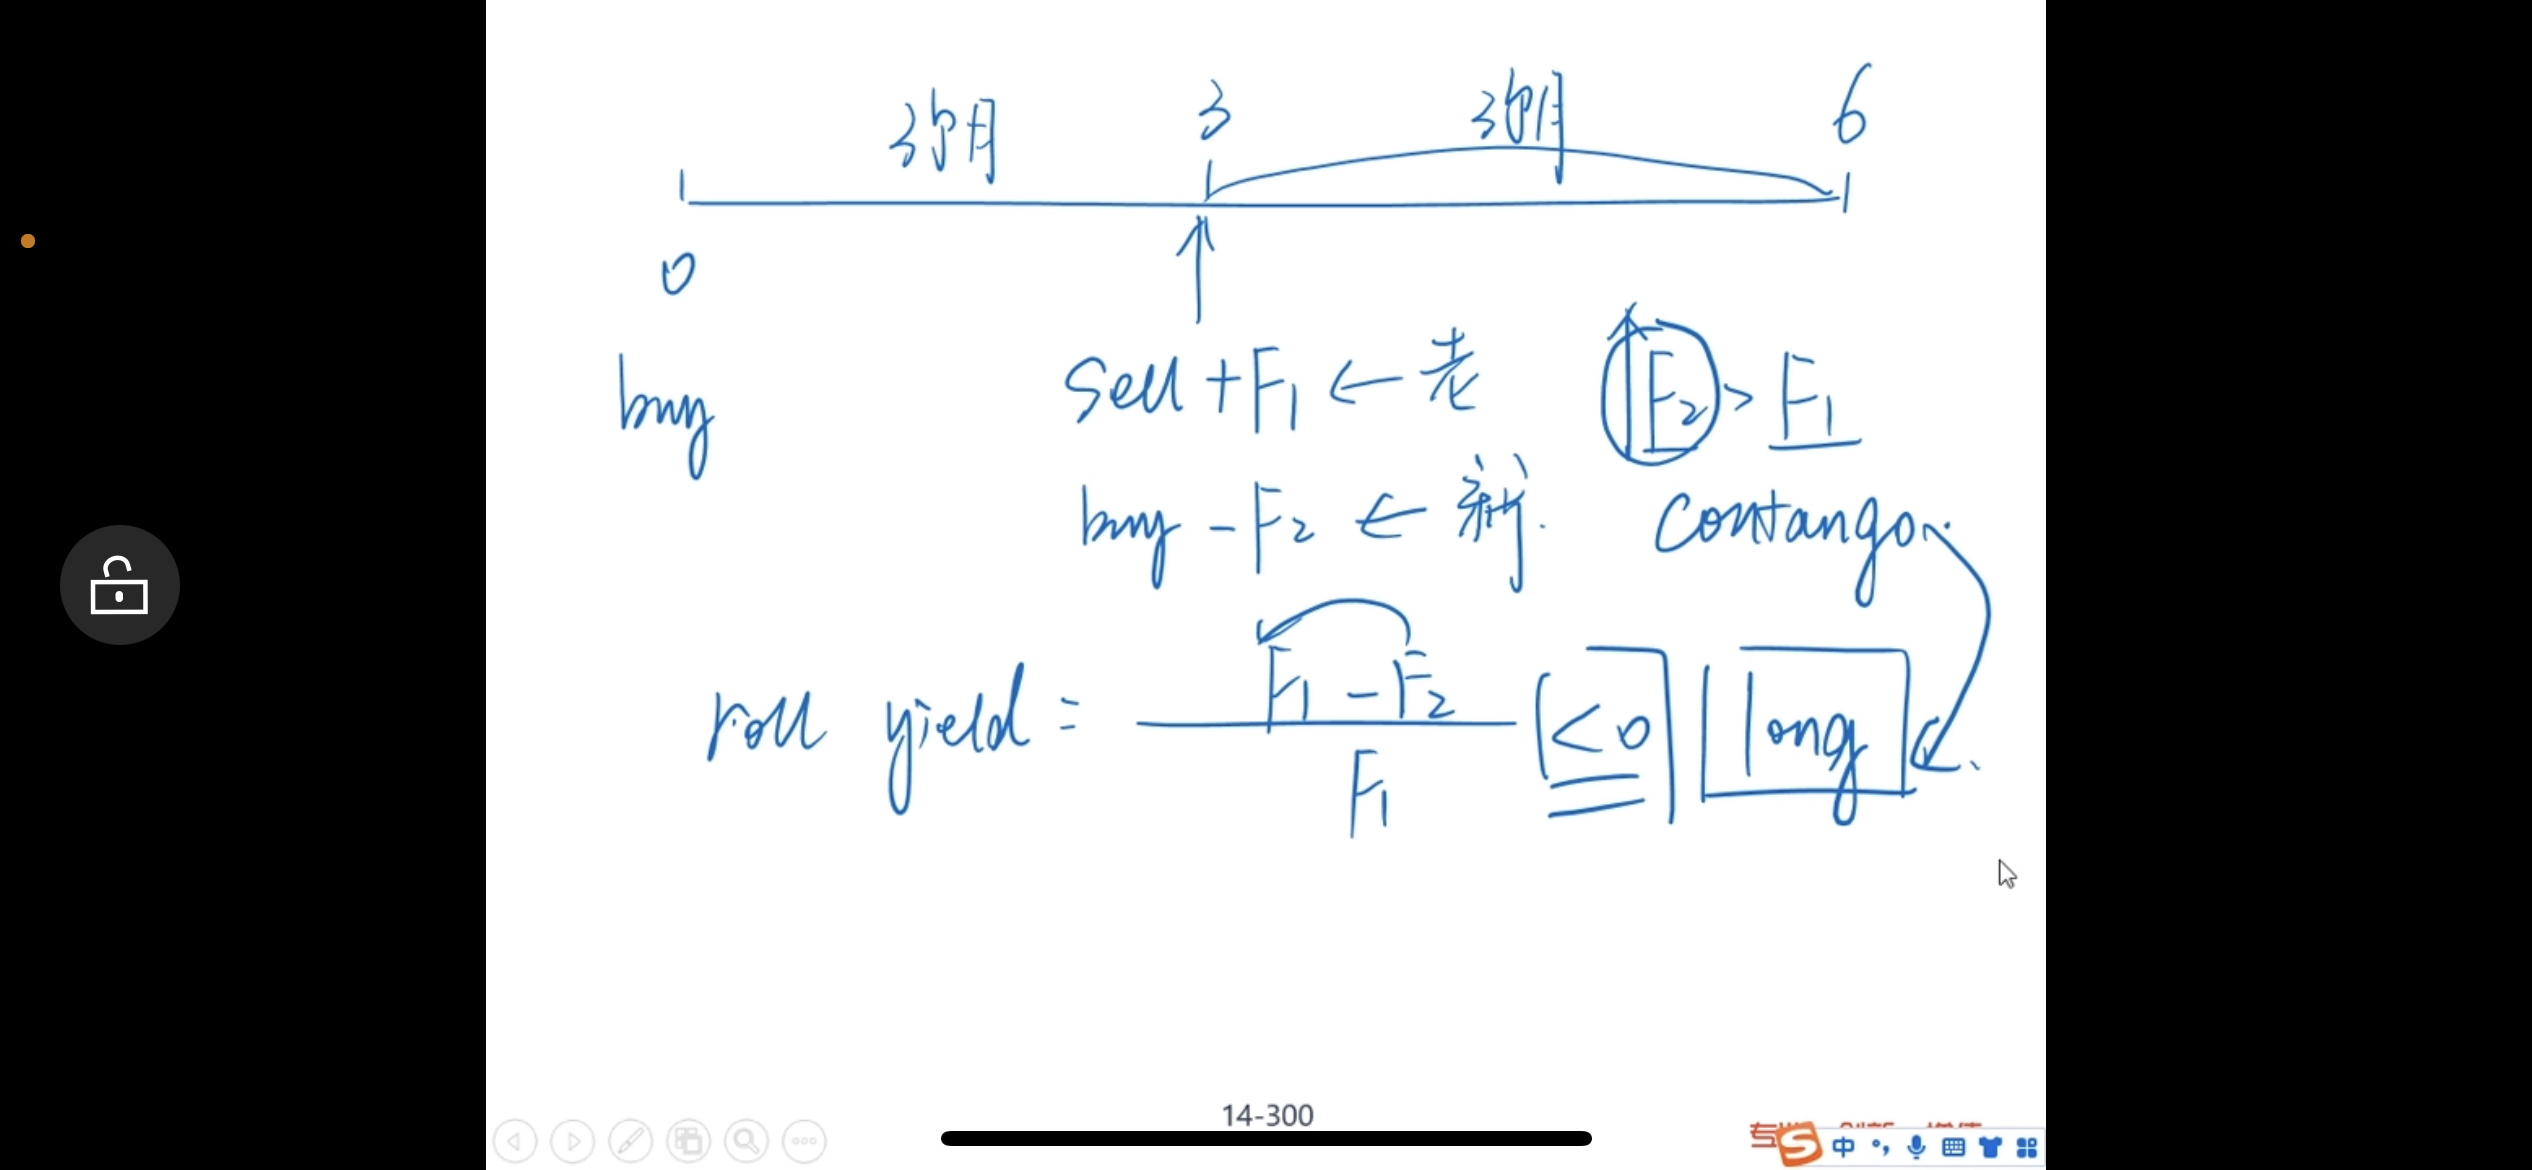 3个月 3 3个月 6
0
buy sell +F1 ← 老 F2 > F1
buy -F2 ← 新. contango
roll yield = (F1 - F2) / F1 <0 long
14-300
中